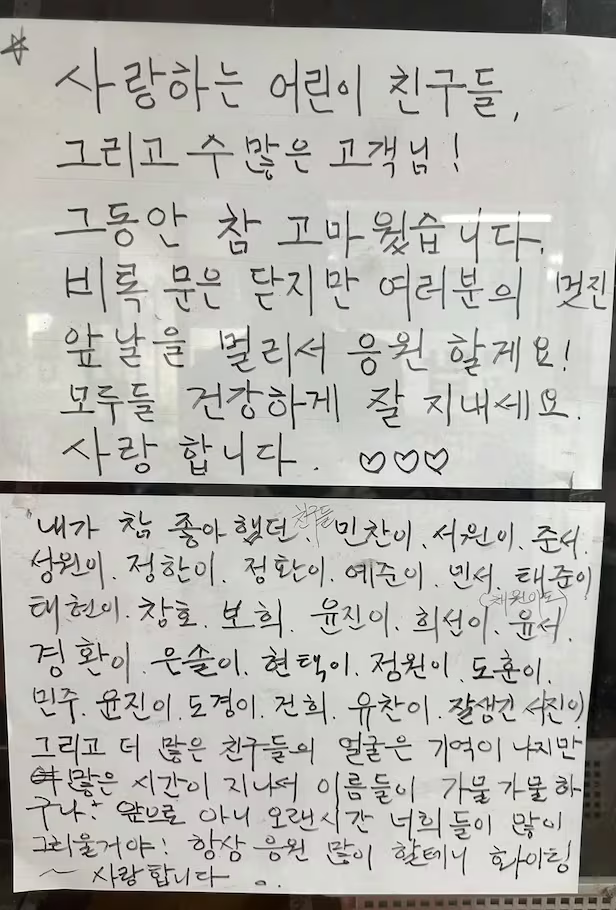 사랑하는 어린이 친구들,
그리고 수많은 고객님!
그동안 참 고마웠습니다.
비록 문은 닫지만 여러분의 멋진
앞날을 멀리서 응원 할게요!
모두들 건강하게 잘 지내세요.
사랑 합니다. ♡♡♡
"내가 참 좋아했던 친구들 민찬이. 서원이. 준서.
성원이. 정한이. 정환이. 예준이. 민서. 태준이
태현이. 창호. 보희. 윤진이. 희선이. (채원이도) 윤서.
경환이. 은솔이. 현택이. 정원이. 도훈이.
민주. 윤진이. 도경이. 건희. 유찬이. 잘생긴 서진이)
그리고 더 많은 친구들의 얼굴은 기억이 나지만
많은 시간이 지나서 이름들이 가물가물하
구나? 앞으로 아니 오랜시간 너희들이 많이
그리울거야! 항상 응원 많이 할테니 화이팅
~ 사랑합니다 ..